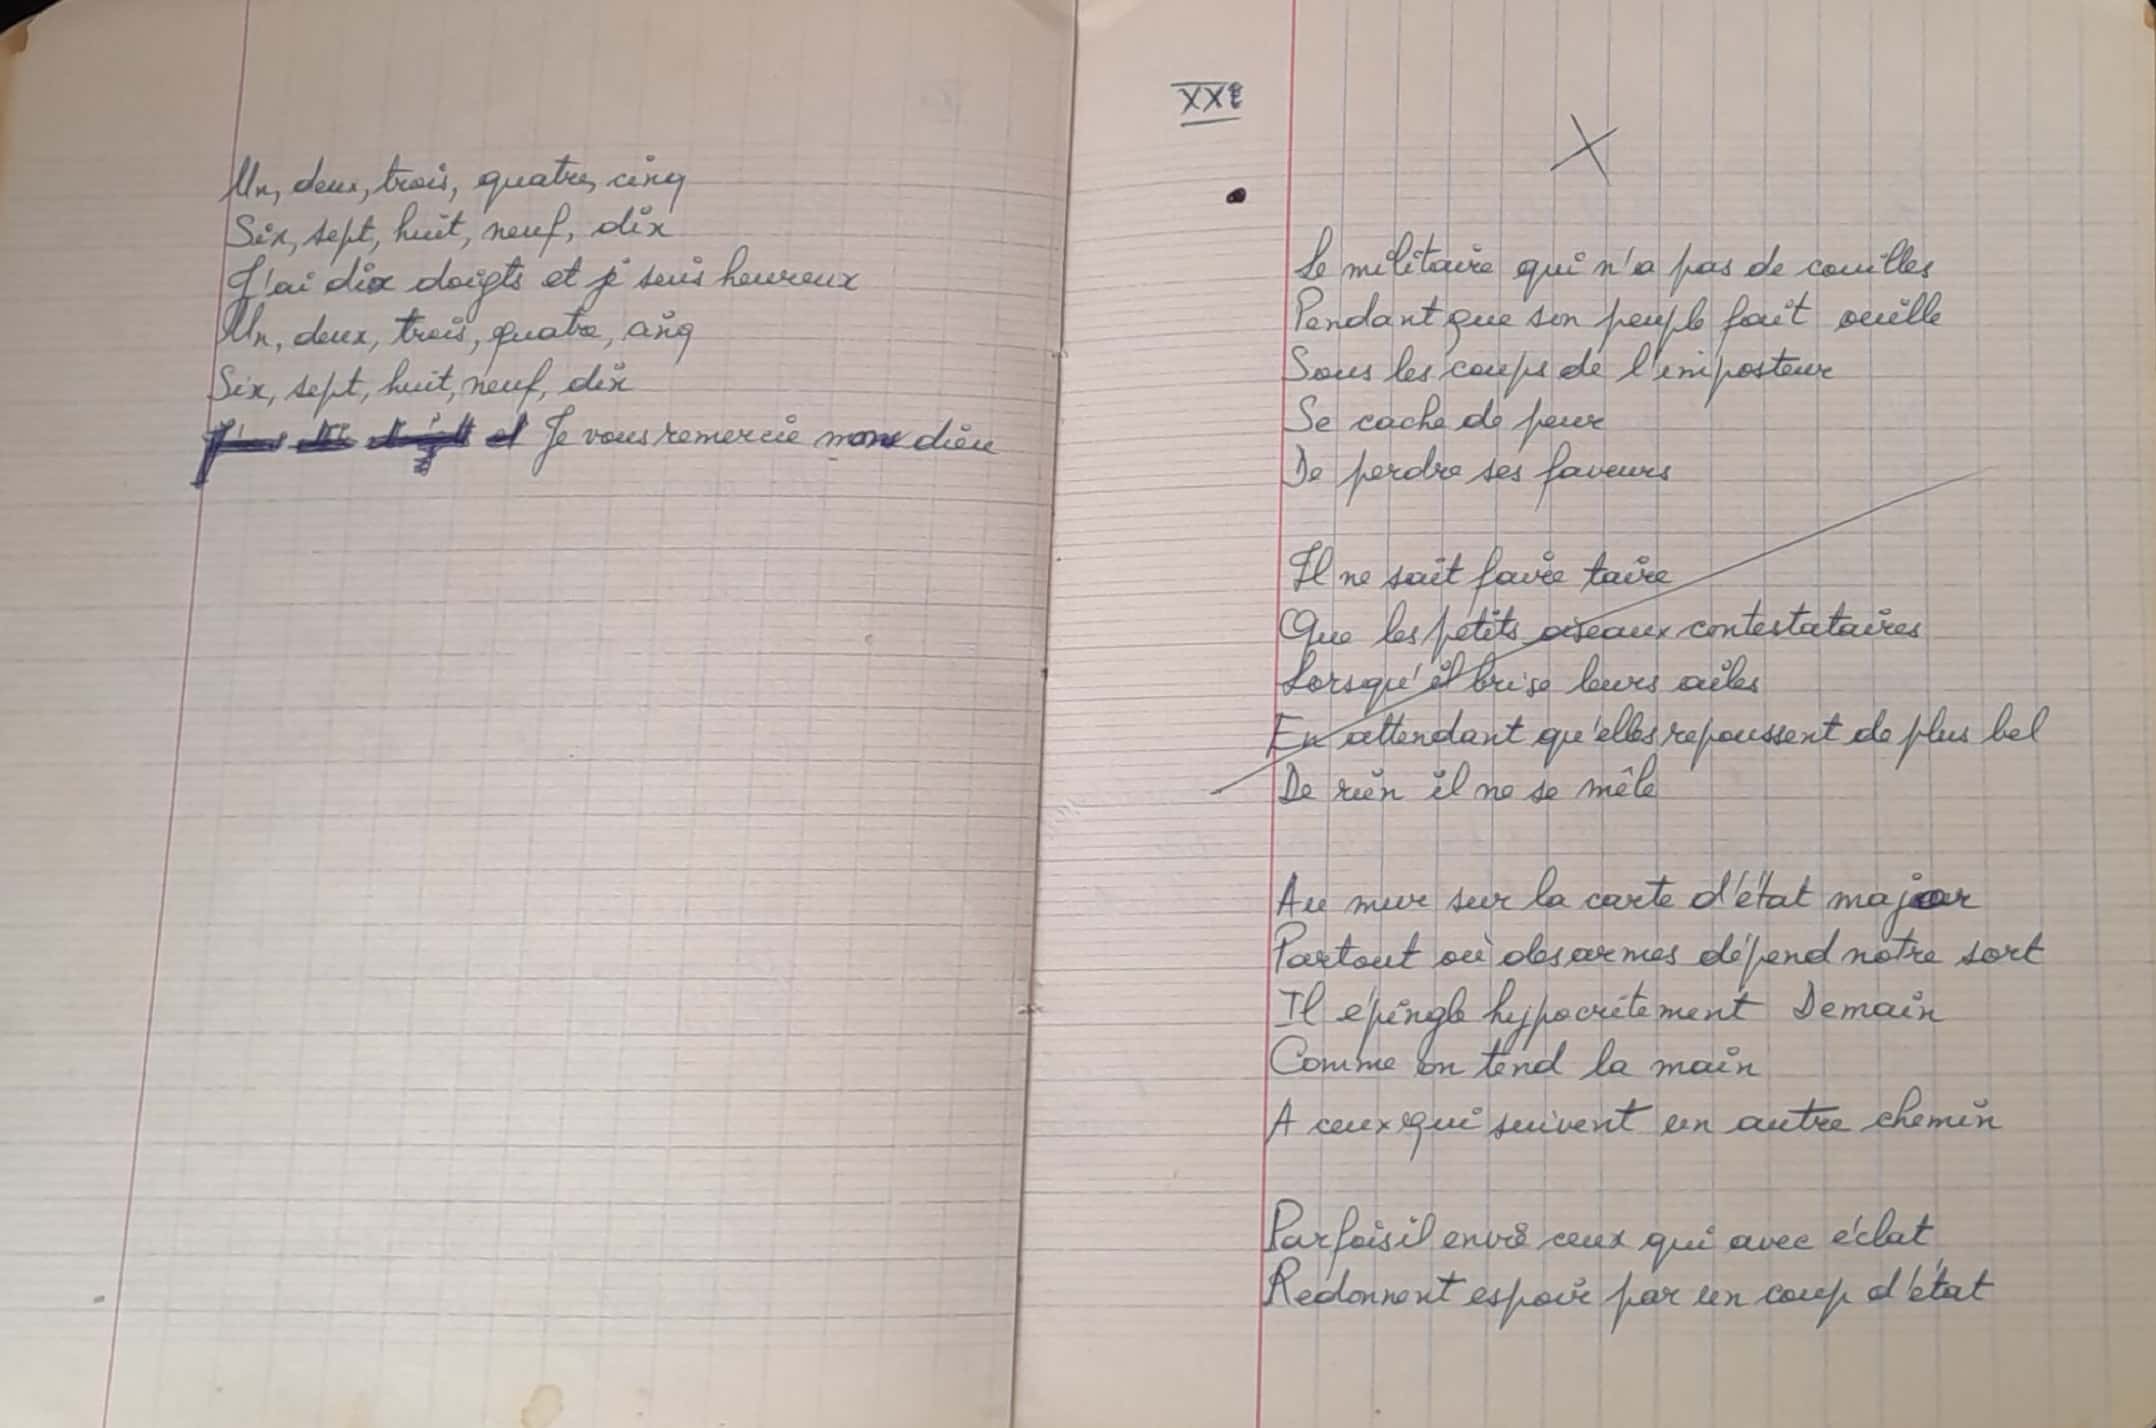 Un, deux, trois, quatre, cinq
Six, sept, huit, neuf, dix
J'ai dix doigts et je suis heureux
Un, deux, trois, quatre, cinq
Six, sept, huit, neuf, dix
Je vous remercie mon dieu
XXe
X
Le militaire qui n'a pas de couilles
Pendant que son peuple fait ouille
Sous les coups de l'imposteur
Se cache de peur
De perdre ses faveurs
Il ne sait faire taire
Que les petits oiseaux contestataires
Lorsqu'il brise leurs ailes
En attendant qu'elles repoussent de plus bel
De rien il ne se mêle
Au mur sur la carte d'état major
Partout où des armes dépend notre sort
Il épingle hypocritement Demain
Comme on tend la main
A ceux qui suivent un autre chemin
Parfois il envie ceux qui avec éclat
Redonnent espoir par un coup d'état